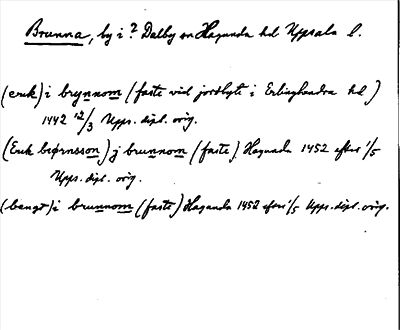 Brunna, by i ? Dalby sn Hagunda hd Uppsala l.
(erik) i brynnom (faste vid jordbyte i Erlinghundra hd)
1442 12/3 Upps. dipl. orig.
(Erik biørnsson) j brunnom (faste) Hagunda 1452 efter 1/5
Upps. dipl. orig.
(bengt) i brunnom (faste) Hagunda 1452 efter 1/5 Upps. dipl. orig.